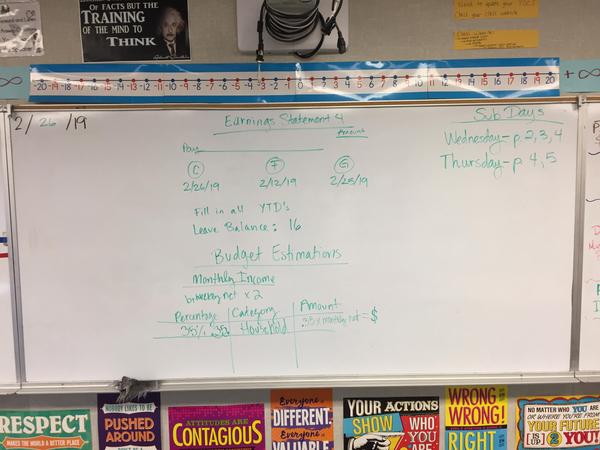 OF FACTS BUT THE
TRAINING
OF THE MIND TO
THINK
-20 -19 -18 -17 -16 -15 -14 -13 -12 -11 -10 -9 -8 -7 -6 -5 -4 -3 -2 -1 0 1 2 3 4 5 6 7 8 9 10 11 12 13 14 15 16 17 18 19 20
∞
+∞
2/26/19
Earnings Statement 4
Amount
Pay
C F G
2/26/19 2/12/19 2/28/19
Fill in all YTD's
Leave Balance: 16
Budget Estimations
Monthly Income
biweekly net x 2
Percentage Category Amount
35% .35 Household .35 x monthly net = $
Sub Days
Wednesday - p. 2, 3, 4
Thursday - p. 4, 5
RESPECT
MAKES THE WORLD A BETTER PLACE
NOBODY LIKES TO BE
PUSHED
AROUND
ATTITUDES ARE
CONTAGIOUS
Everyone is
DIFFERENT.
Everyone is
VALUABLE
YOUR ACTIONS
SHOW WHO
YOU
ARE
WRONG
WRONG!
RIGHT
NO MATTER WHO YOU ARE
OR WHERE YOU'RE FROM
YOUR FUTURE
IS UP 2 YOU!